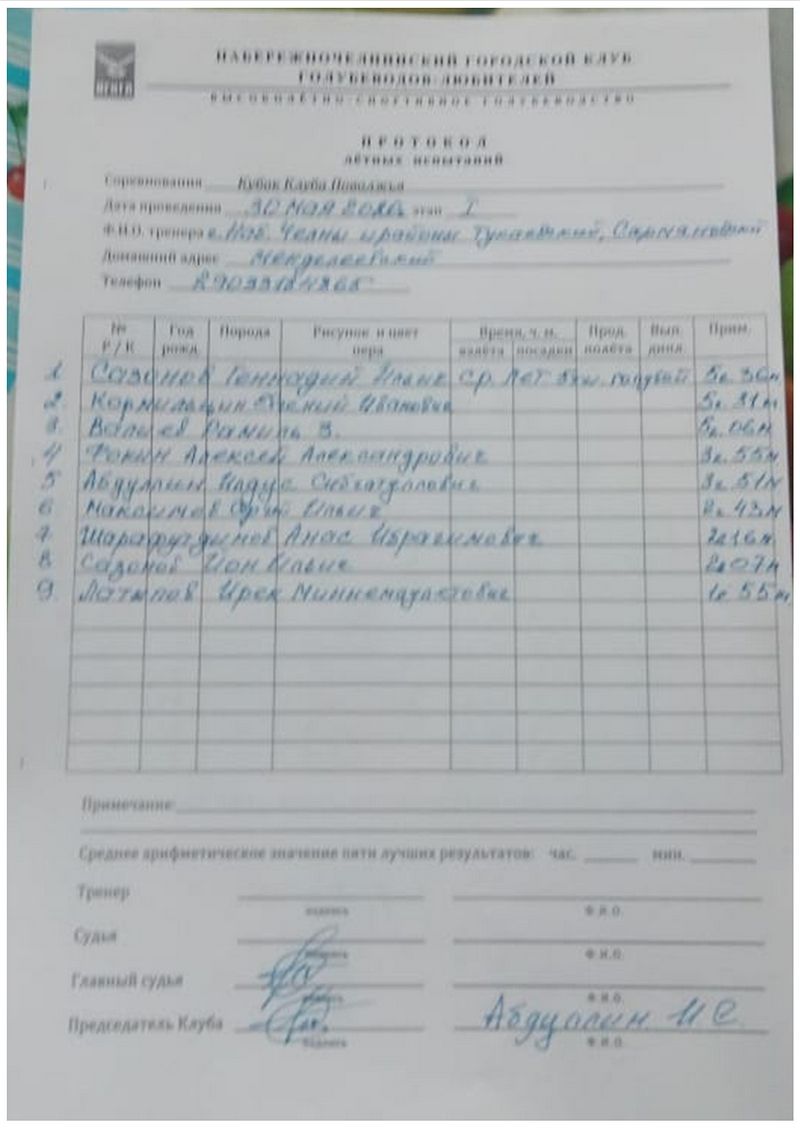 НАБЕРЕЖНОЧЕЛНИНСКИЙ ГОРОДСКОЙ КЛУБ
ГОЛУБЕВОДОВ-ЛЮБИТЕЛЕЙ
ВЫСОКОЛЁТНО-СПОРТИВНОЕ ГОЛУБЕВОДСТВО
ПРОТОКОЛ
ЛЁТНЫХ ИСПЫТАНИЙ
Соревнования Кубок Клуба Поволжья
Дата проведения 30 мая 2020г этап I
Ф.И.О. тренера г. Наб. Челны и районы Тукаевский, Сармановский
Домашний адрес Менделеевский
Телефон
№ Р / К Год рожд. Порода Рисунок и цвет пера Время, ч. м. взлёта посадки Прод. полёта Вып. дипл. Прим.
1 Сазонов Геннадий Ильич ср. лет 5ти голубей 5ч. 36м
2. Кормильцин Евгений Иванович 5ч. 31м
3. Валиев Рамиль З. 5ч. 06м
4 Фокин Алексей Александрович 3ч. 55м
5 Абдуллин Илдус Сибгатуллович 3ч. 51м
6 Максимов Юрий Ильич 2ч. 43м
7. Шарафутдинов Анас Ибрагимович 2ч16м
8. Сазонов Ион Ильич 2ч07м
9. Латыпов Ирек 1ч 55м
Примечание
Среднее арифметическое значение пяти лучших результатов: час. мин.
Тренер
подпись Ф.И.О.
Судья
подпись Ф.И.О.
Главный судья
подпись Ф.И.О.
Председатель Клуба Абдуллин И С.
подпись Ф.И.О.